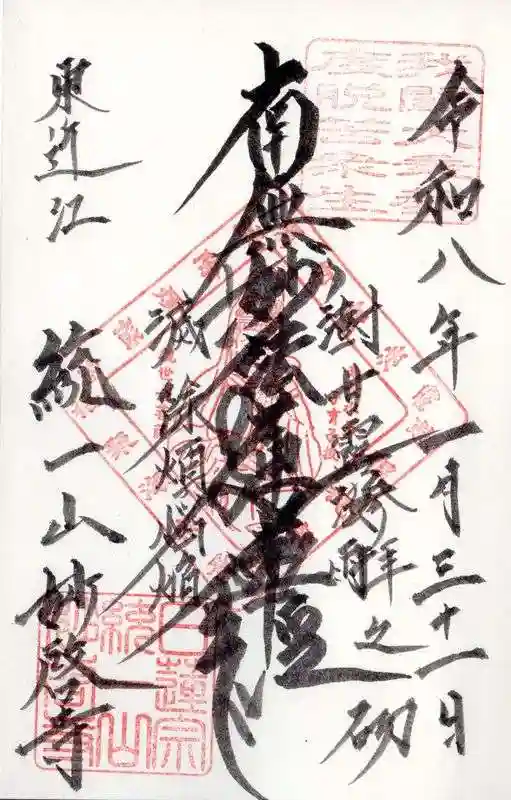 令和八年一月三十一日
拝之砌
澍甘露法雨
南無妙法蓮華経
滅除煩悩焔
東近江
統一山妙啓寺
日蓮宗
統一山
妙啓寺